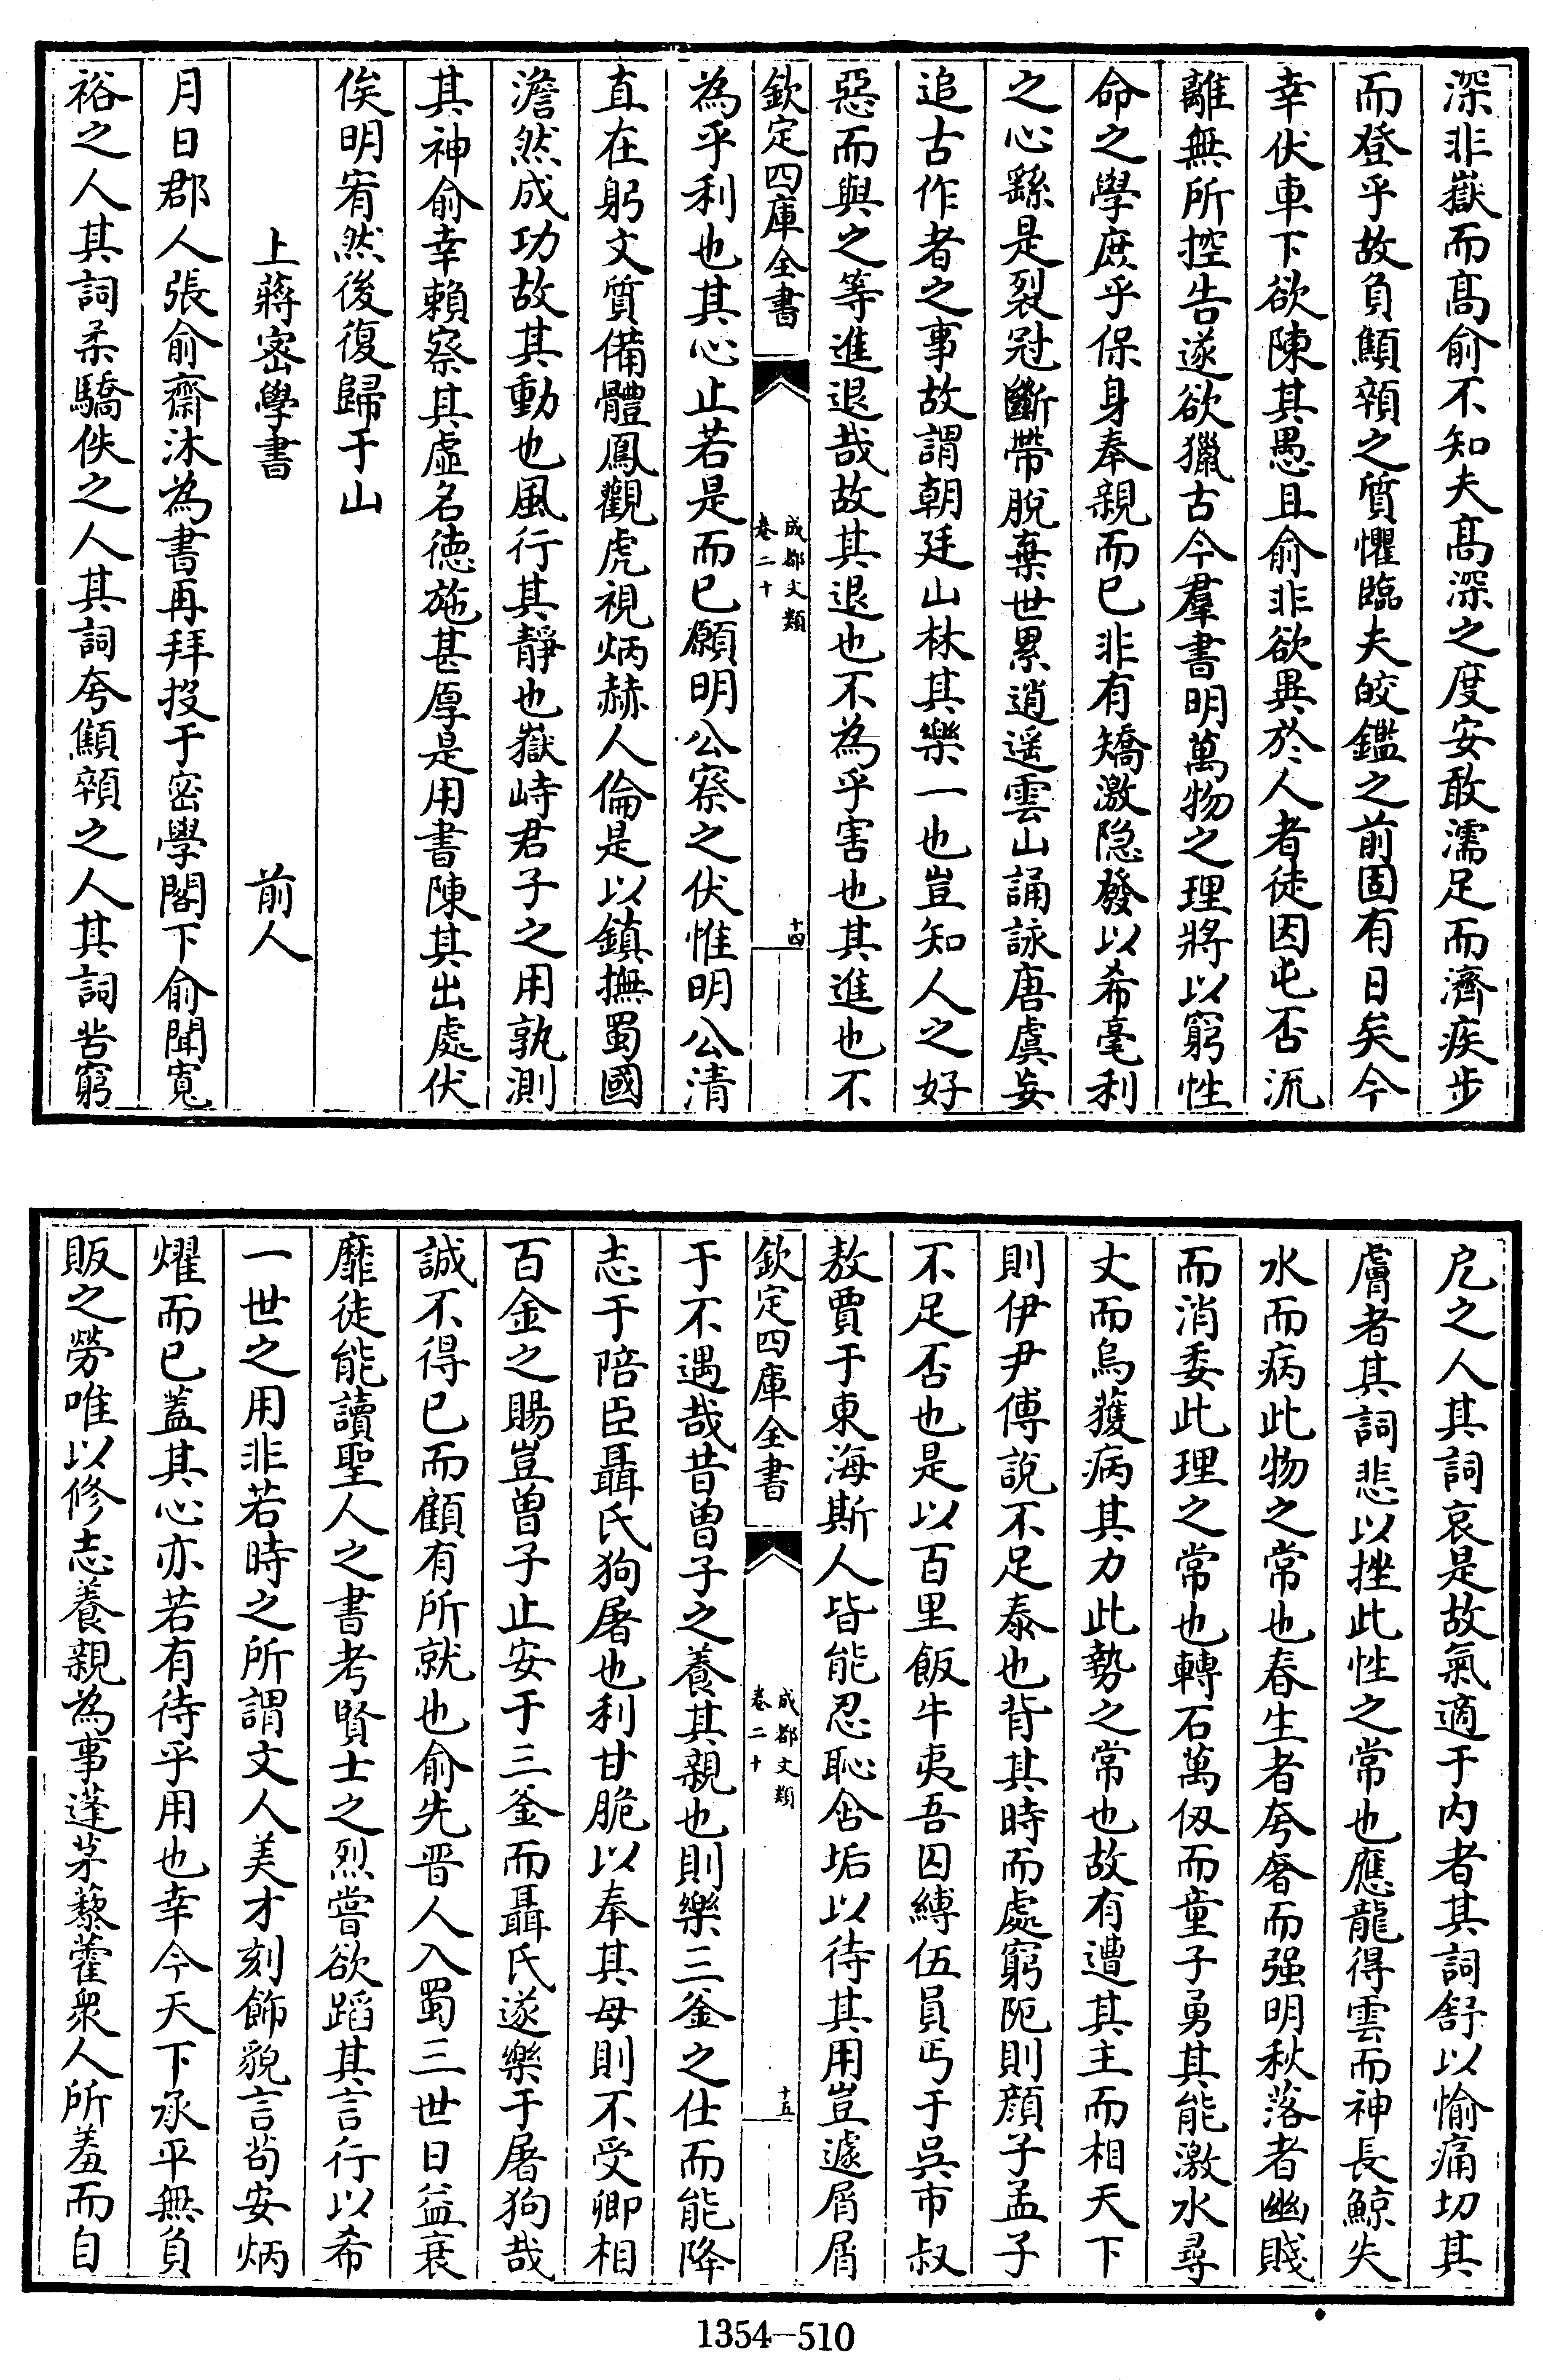 深非嶽而髙俞不知夫髙深之度安敢濡足而濟疾步
而登乎故負顦顇之質懼臨夫皎鑑之前固有日矣今
幸伏車下欲陳其愚且俞非欲異於人者徒因屯否流
離無所控告遂欲獵古今羣書明萬物之理將以窮性
命之學庶乎保身奉親而已非有矯激隐發以希毫利
之心繇是裂冠斷帶脫棄世累逍遥雲山誦詠唐虞妄
追古作者之事故謂朝廷山林其樂一也豈知人之好
惡而與之等進退哉故其退也不為乎害也其進也不
欽定四庫全書
成都文類
卷二十
十四
為乎利也其心止若是而已願明公察之伏惟明公清
直在躬文質備體鳳觀虎視炳赫人倫是以鎮撫蜀國
澹然成功故其動也風行其靜也嶽峙君子之用孰測
其神俞幸賴察其虛名德施甚厚是用書陳其出處伏
俟明宥然後復歸于山
上蔣宻學書 前人
月日郡人張俞齋沐為書再拜投于密學閣下俞聞寬
裕之人其詞柔驕佚之人其詞夸顦顇之人其詞苦窮
戹之人其詞哀是故氣適于内者其詞舒以愉痛切其
膚者其詞悲以挫此性之常也應龍得雲而神長鯨失
水而病此物之常也春生者夸奢而强明秋落者幽賤
而消委此理之常也轉石萬仭而童子勇其能激水尋
丈而烏獲病其力此勢之常也故有遭其主而相天下
則伊尹傅說不足泰也背其時而處窮阨則顔子孟子
不足否也是以百里飯牛夷吾囚縛伍員丐于吳市叔
敖賈于東海斯人皆能忍恥含垢以待其用豈遽屑屑
欽定四庫全書
成都文類
卷二十
十五
于不遇哉昔曽子之養其親也則樂三釜之仕而能降
志于陪臣聶氏狗屠也利甘脆以奉其母則不受卿相
百金之賜豈曽子止安于三釜而聶氏遂樂于屠狗哉
誠不得已而顧有所就也俞先晋人入蜀三世日益衰
靡徒能讀聖人之書考賢士之烈嘗欲蹈其言行以希
一世之用非若時之所謂文人美才刻飾貌言茍安炳
燿而已蓋其心亦若有待乎用也幸今天下承平無負
販之勞唯以修志養親為事蓬茅藜藿衆人所羞而自
1354—510